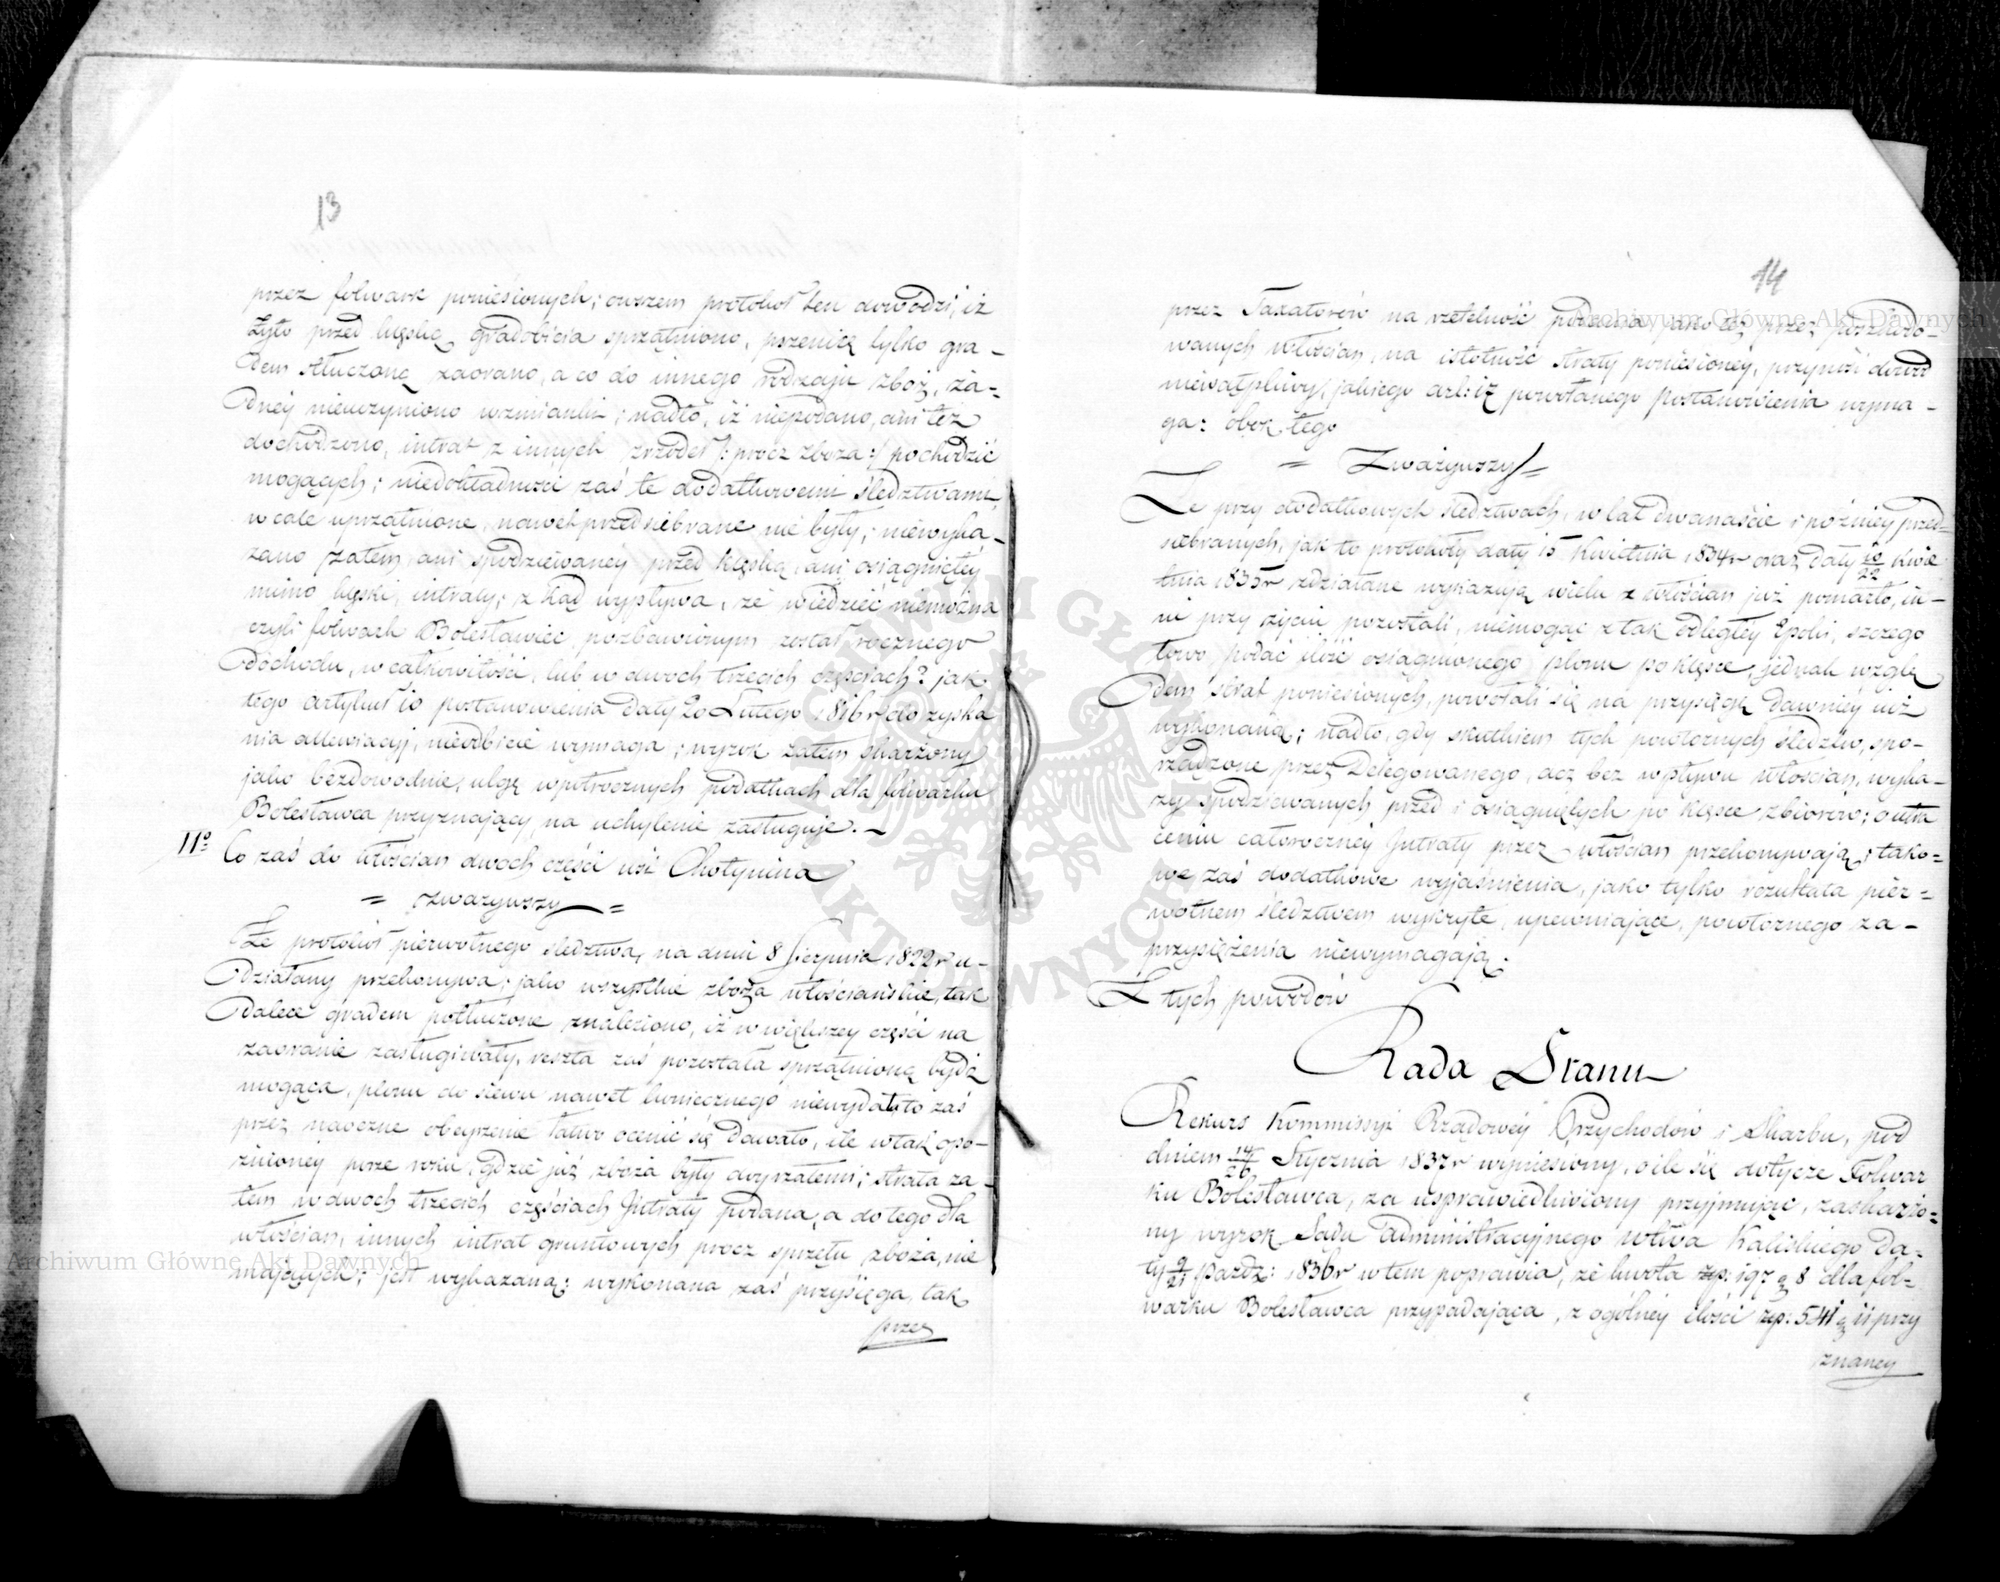 13
przez folwark poniesionych; owszem protokół ten dowodzi, iż
żyto przed klęską gradobicia sprzątniono, pszenicę tylko gra-
dem stłuczoną zaorano, a co do innego rodzaju zbóż, ża-
dney nieuczyniono wzmianki; nadto, iż niepodano, ani też
dochodzono, intrat z innych zrzódeł /: procz zboża :/ pochodzić
mogących; niedokładności zaś te dodatkowemi śledztwami,
wcale uprzątnione, nawet przedsiebrane nie były; niewyka-
zano zatem, ani spodziewaney przed klęską, ani osiągniętey
mimo klęski, intraty; z kąd wypływa, że wiedzieć niemożna
czyli folwark Bolesławiec pozbawionym został rocznego
dochodu, w całkowitości, lub w dwoch trzecich częściach? jak
tego artykuł 10 postanowienia daty 20 Lutego 1816 r do zyska
nia allewiacyj, nieodbicie wymaga; wyrok zatem skarżony
jako bezdowodnie, ulgę w półrocznych podatkach dla folwarku
Bolesławca przyznający, na uchylenie zasługuje. –
II° Co zaś do włościan dwoch części wsi Chotynina
= Zważywszy =
Że protokół pierwotnego śledztwa, na dniu 8 Sierpnia 1822 r u-
działany przekonywa; jako wszystkie zboża włościańskie, tak
dalece gradem potłuczone znaleziono, iż w większey części na
zaoranie zasługiwały, reszta zaś pozostała sprzątnioną bydź
mogąca, plonu do siewu nawet koniecznego niewydała to zaś
przez naoczne obeyrzenie łatwo ocenić się dawało, ile w tak opo-
znioney porze roku, gdzie już zboża były doyrzałemi; strata za-
tem w dwoch trzecich częściach Jntraty podana, a do tego dla
włościan, innych intrat gruntowych procz sprzętu zboża, nie
mających; jest wykazaną; wykonana zaś przysięga, tak
przez
14
przez Taxatorow na rzetelność podania jako też przez poszkodo-
wanych włościan, na istotność straty poniesioney, przynosi dowod
niewątpliwy, jakiego art: iż powołanego Postanowienia wyma-
ga: obok tego
= Zważywszy =
Że przy dodatkowych śledztwach, w lat dwanaście i pożniey przed-
siebranych, jak to protokoły daty 15 Kwietnia 1834 r oraz daty 10/22 Kwie
tnia 1835 r zdziałane wykazują wielu z włościan już pomarło, in-
ni przy życiu pozostali, niemogąc z tak odległey Epoki, szczego
łowo, podać ilość osiągnionego plonu po klęsce, jednak wzglę
dem strat poniesionych, powołali się na przysięgę dawniey już
wykonaną; nadto, gdy skutkiem tych powtornych śledztw, spo-
rządzone przez Delegowanego, acz bez wpływu włościan, wyka-
zy spodziewanych przed i osiągniętych po klęsce zbiorow; o utra
ceniu całoroczney Jntraty przez włościan przekonywają; tako-
we zaś dodatkowe wyjaśnienia, jako tylko rezultata pier-
wotnem śledztwem wykryte, upewniające, powtornego za-
przysiężenia niewymagają.
Z tych powodow
Rada Stanu
Rekurs Kommissyi Rządowey Przychodow i Skarbu, pod
dniem 14/26 Stycznia 1837 r wyniesiony, o ile się dotycze Folwar
ku Bolesławca, za usprawiedliwiony przyjmując, zaskarżo-
ny wyrok Sądu Administracyjnego Wtwa Kaliskiego da-
ty 9/21 Pazdz: 1836 r w tem poprawia, że kwota zp: 197 g 8 dla fol-
warku Bolesławca przypadająca, z ogólney ilości zp: 541 g 11 przy
znaney
Archiwum Główne Akt Dawnych
Archiwum Główne Akt Dawnych
ARCHIWUM GŁÓWNE AKT DAWNYCH